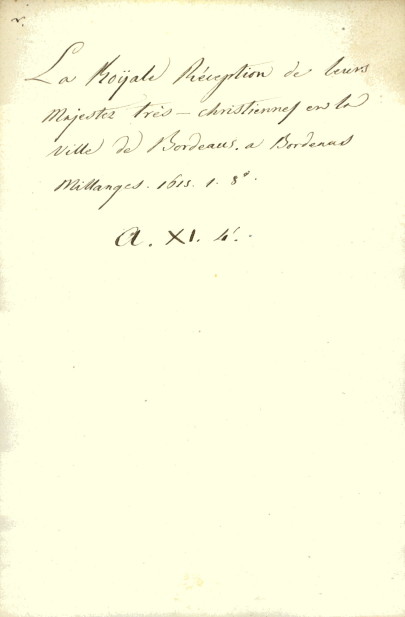 La Roÿale Réception de leurs
Majestes très-christiennes en la
Ville de Bordeaus. a Bordeaus
Millanges. 1615. 1. 8°.
A. XI. 4.